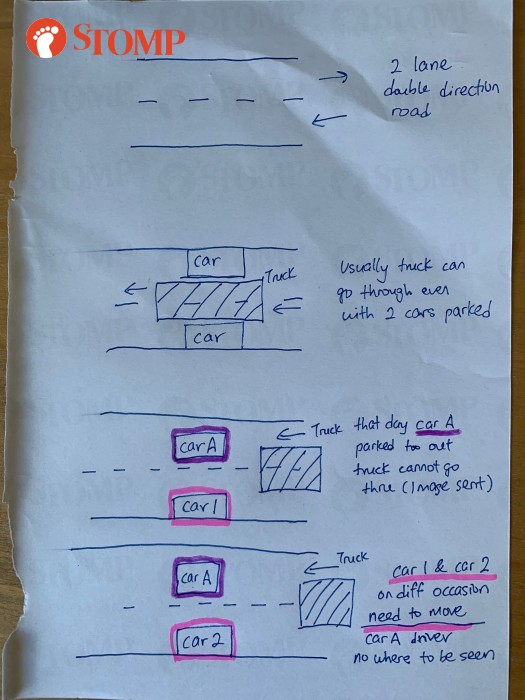 STOMP
2 lane
double direction
road
car
Truck
car
Usually truck can
go through even
with 2 cars parked
Truck
car A
car 1
that day car A
parked too out
truck cannot go
thru (Image sent)
Truck
car A
car 2
car 1 & car 2
on diff occasion
need to move
car A driver
no where to be seen